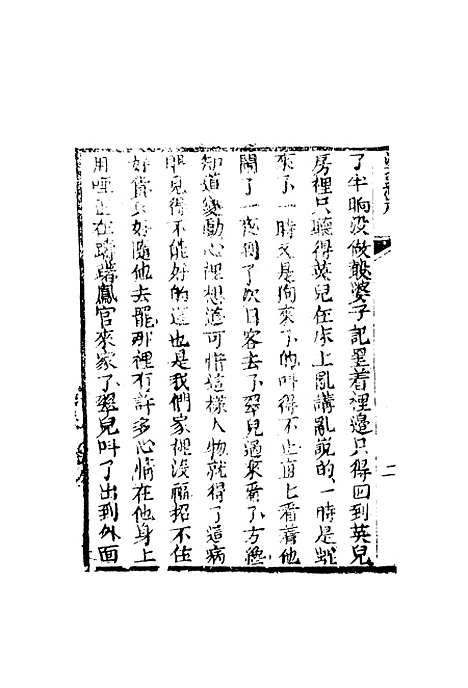 了半晌没做𢾗婆子記罣着裡邉只得回到英兒
房裡只聽得英兒在床上亂講亂說的一時是蛇
來了一時又是狗來了他叫得不止直上看着他
鬧了一夜到了次日客去了翠兒過來看了方纔
知道變動心裡想道可惜這樣人物就得了這病
眼見得不能好的這也是我們家裡没福招不住
好貨只好隨他去罷那裡有許多心情在他身上
用哩正在躊躇鳳官來家了翠兒叫了出到外面
二